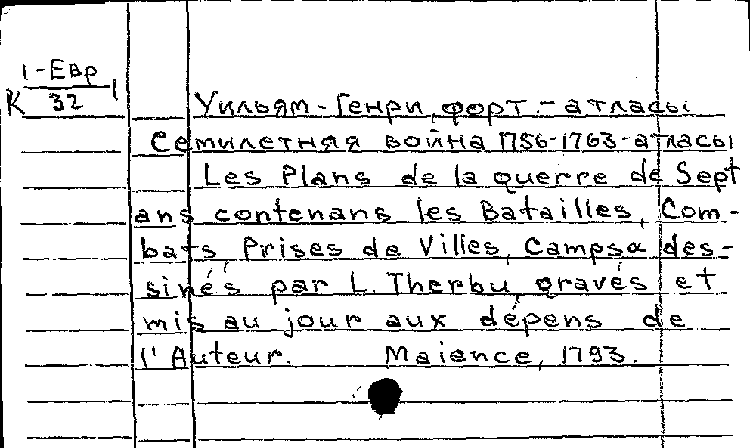 1-Евр
К 32 1
Уильям-Генри, форт - атласы
Семилетняя война 1756-1763-атласы
Les Plans de la querre de Sept
ans contenans les Batailles, Com-
bats, Prises de Villes, Camps& des-
sinés par L. Therbu, gravés et
mis au jour aux dépens de
l'Auteur. Maience, 1793.